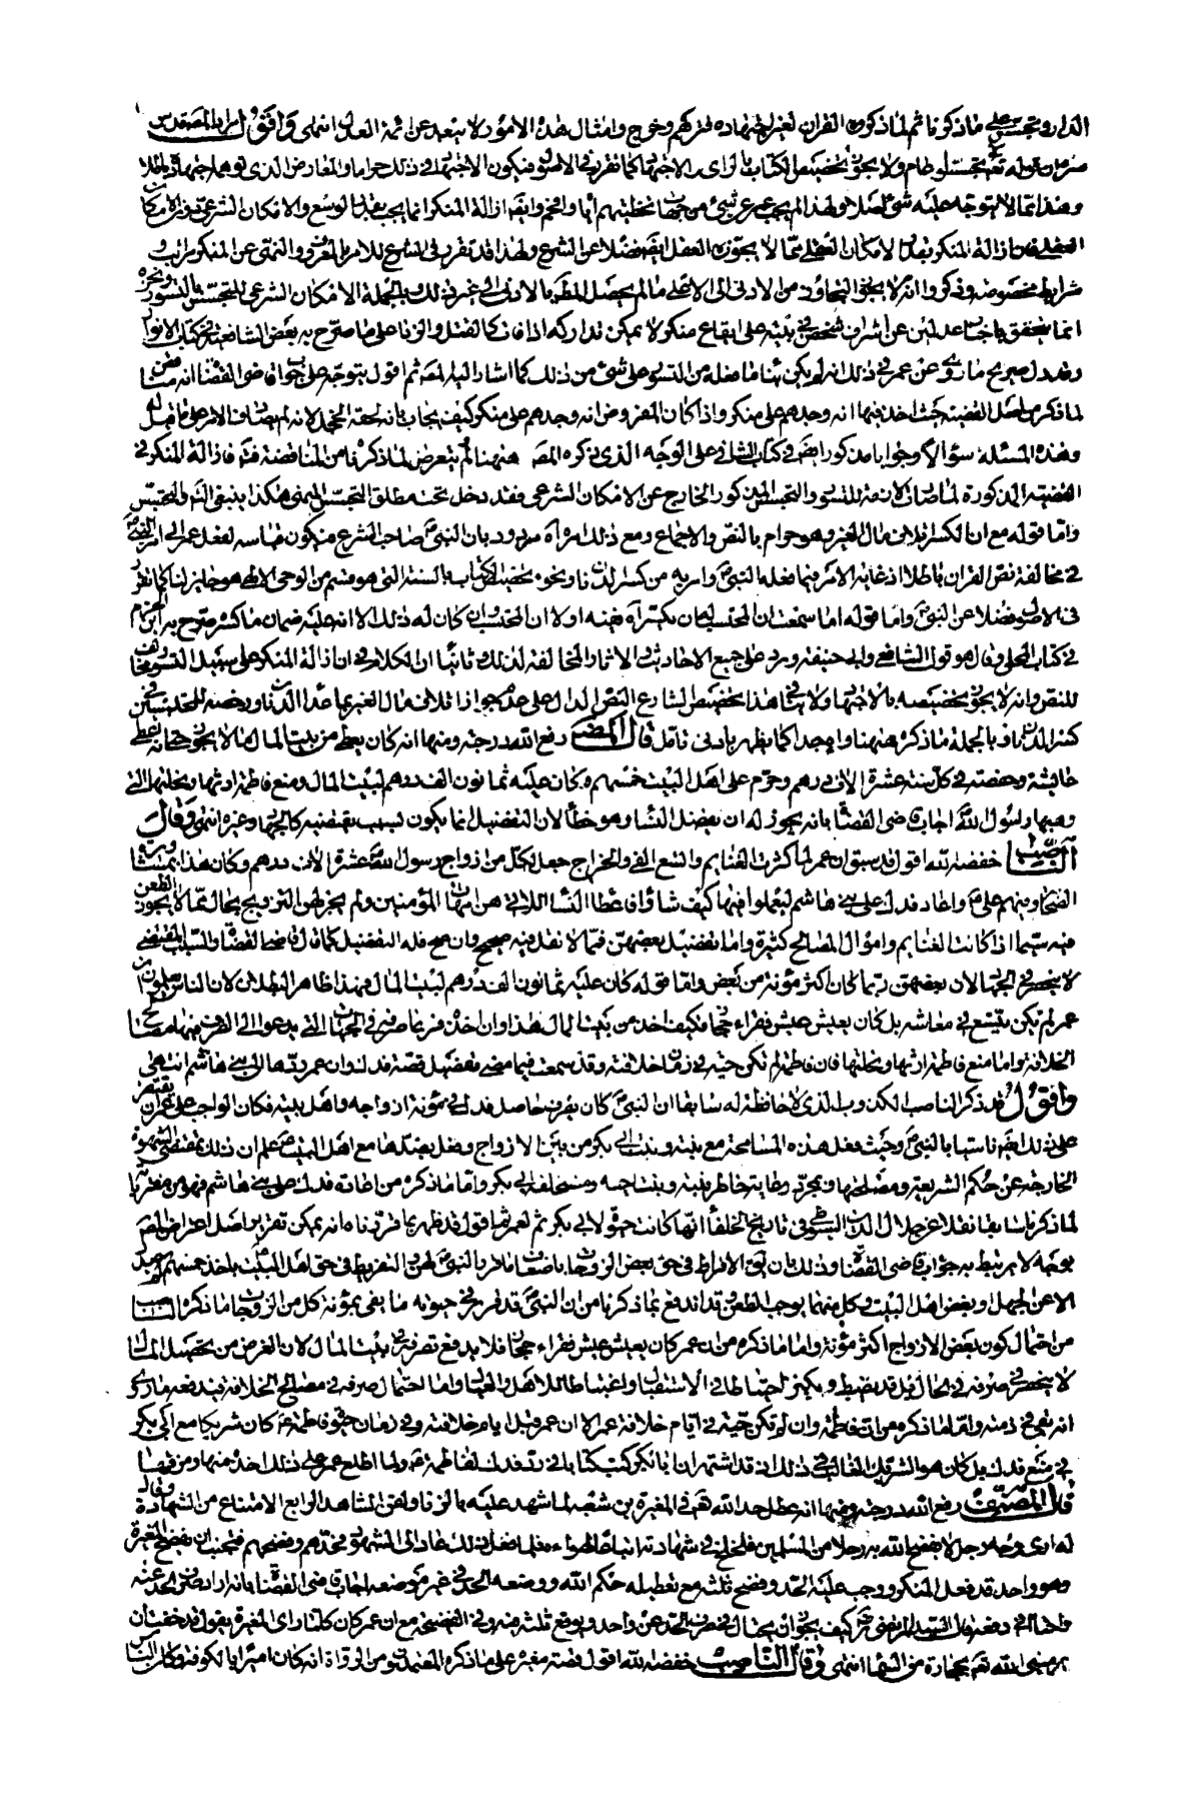 الدار وتجسس على ما ذكر فاثم لما ذكر من القران لغير اجتهاده فتركهم وخرج وامثال هذه الامور لا يبعد عن ائمة العدل انتهى واقول مراد المصنف قدس
من قوله تعالى تجسسوا عام ولا يجوز تخصيص الكتاب بالراى والاجتهاد كما تقرر فى الاصول فيكون الاجتهاد فى ذلك حراما
وهذا مما لا يتوجه عليه شىء اصلا ولهذا لم يجب عمر عن شىء من جهات تخطئتهم اياه وافحم وايضا ازالة المنكر انما يجب بقدر الوسع والامكان الشرعى دون الامكان
العقلى فان ازالة المنكر بقدر الامكان العقلى مما لا يجوزه العقل ايضا فضلا عن الشرع ولهذا قد تقرر فى الشرع للامر بالمعروف والنهى عن المنكر مراتب و
شرايط مخصوصة وذكروا انه لا يجوز التجاوز من الادنى الى الاعلى ما لم يحصل المطلب بالادنى الى غير ذلك وبالجملة الامكان الشرعى للتجسس بالتسور ونحوه
انما يتحقق باخبار عدلين عن اشراف شخص فى بيته على ايقاع منكر لا يمكن تداركه اذا فات كالقتل والزنا على ما صرح به بعض الشافعية فى كتاب الانوار
وقد دل صريح ما روى عن عمر فى ذلك انه لم يكن بناء ما فعله من التسور على شىء من ذلك كما اشار اليه المصنف ثم اقول يتوجه على جواب قاضى القضاة انه مناقض
لما ذكر من اصل القضية حيث اخذ فيها انه وجدهم على منكر واذا كان المفروض انه وجدهم على منكر كيف يجاب بانه لحقه الخجل لانه لم يصادف الامر على ما قيل له
وهذه المسئلة سؤالا وجوابا مذكور ايضا فى كتاب الشافى وعلى الوجه الذى ذكره المصنف ههنا لم يتعرض لما ذكرنا من المناقضة فتم فازالة المنكر فى
القضية المذكورة لما صارت لازمة للتسور والتجسس المذكور الخارج عن الامكان الشرعى فقد دخل تحت مطلق التجسس المنهى هكذا ينبغى الفهم والتجسس
واما قوله مع ان الكسر اتلاف مال الغير وهو حرام بالنص والاجماع ومع ذلك امر به مردود بان النبى ص صاحب الشرع فيكون قياسه لفعل عمر الى امر النبى ص
فى مخالفة نص القران باطلا اذ غاية الامر فيما فعله النبى ص وامر به من كسر الدنان ونحوه تخصيص الكتاب بالسنة التى هو قسم من الوحى الالهى وهو جايز لنا كما تقرر
فى الاصول فضلا عن النبى ص واما قوله اما سمعت ان المحتسب له ان يكسر ففيه اولا ان المحتسب وان كان له ذلك الا انه عليه ضمان ما كسر صرح به ابن حزم
فى كتاب المحلى وقال هو قول الشافعى وابى حنيفة ورد على جميع الاحاديث والاثار المخالفة لذلك وثانيا ان الكلام فى ان ازالة المنكر على سبيل التسور مخالف
للنص وانه لا يجوز تخصيصه بالاجتهاد ولا ينافى هذا تخصيص الشارع النص الدال على عدم جواز اتلاف مال الغير بما عدا الدنان ورخصه للمحتسبين فى
كسر الدنان وبالجملة ما ذكره ههنا وامجدا كما يظهر بادنى تامل قال المصنف رفع الله درجته ومنها انه كان يعطى من بيت المال ما لا يجوز حتى انه يعطى
عايشة وحفصة فى كل سنة عشرة الاف درهم وحرم على اهل البيت خمسهم وكان عليه ثمانون الف درهم لبيت المال ومنع فاطمة ارثها ونحلتها التى
وهبها رسول الله اجاب قاضى القضاة بانه يجوز له ان يفضل النساء وهو خطأ لان التفضيل انما يكون لسبب يقتضيه كالجهاد وغيره انتهى وقال
الناصب خفضه الله اقول قد سبق ان عمر لما كثرت الغنايم واتسع الفىء والخراج جعل لكل من ازواج رسول الله ص عشرة الاف درهم وكان هذا بمشاورة
الصحابة ومنهم على ع واعاد فدك على بنى هاشم ليعملوا فيها كيف شاؤا فاعطاء النساء اللاتى هن امهات المؤمنين ولم يجز لهن التزويج بحال مما لا يجوز الطعن
فيه سيما اذا كانت الغنايم واموال المصالح كثيرة واما تفضيل بعضهن فمما لا نقل فيه صحيح وان صح فله التفضيل كما قال قاضى القضاة والسبب المقتضى
لا ينحصر فى الجهاد لان بعضهن ربما كان اكثر مؤنة من بعض واما قوله كان عليه ثمانون الف درهم لبيت المال فهذا ظاهر البطلان لان الناس يعلمون ان
عمر لم يكن يتسع فى معاشه بل كان يعيش عيش فقراء الحجاز فكيف اخذ من بيت المال هذا وان اخذه فربما صرفه فى الجهات التى يدعو الى الصرف فيها مصالح
الخلافة واما منع فاطمة ارثها ونحلتها فان فاطمة لم تكن حية فى زمان خلافته وقد سمعت فيما مضى تفصيل قصة فدك وان عمر ردها الى بنى هاشم انتهى
واقول قد ذكر الناصب الكذوب الذى لا حافظة له سابقا ان النبى ص كان يصرف حاصل فدك فى مؤنة ازواجه واهل بيته فكان الواجب على عمر ان يقتصر
على ذلك ايضا تاسيا بالنبى ص وحيث فعل هذه المسامحة مع بنته وبنت ابى بكر من بين الازواج وفعل بضدها مع اهل البيت علم ان ذلك بمقتضى الشهوة
الخارجة عن حكم الشريعة ومصلحتها وبمجرد رعاية خاطر بنته وبنت صاحبه ومستخلفه ابى بكر واما ما ذكره من اعادة فدك على بنى هاشم فهو من مفترياته
لما ذكرنا سابقا نقلا عن جلال الدين السيوطى فى تاريخ الخلفاء انها كانت حبوة لابى بكر ثم لعمر ثم اقول قد ظهر بما قررناه انه يمكن تقرير اصل اعتراض المصنف
بوجه لا يرتبط به جواب قاضى القضاة وذلك بان يق الافراط فى حق بعض الزوجات باضعاف ما قرره النبى ص لهن والتفريط فى حق اهل البيت باخذ خمسهم لا يصدر
الا عن الجهل او بغض اهل البيت وكل منهما يوجب الطعن وقد اندفع بما ذكرنا من ان النبى ص قد قرر فى حيوته ما يفى بمؤنة كل من الزوجات ما ذكره الناصب
من احتمال كون بعض الازواج اكثر مؤنة واما ما ذكره من ان عمر كان يعيش عيش فقراء حجاز فلا يدفع تصرفه فى بيت المال لان الغرض من تحصيل المال
لا ينحصر فى صرفه فى الحال بل قد يضبط ويكنز احتياطا فى الاستقبال واغتباطا للاهل والعيال واما احتمال صرفه فى مصالح الخلافة فيدفعه ما روى
انه بقى فى ذمته واما ما ذكره من ان فاطمة وان لم تكن حية فى ايام خلافة عمر الا ان عمر قبل ايام خلافته وفى زمان حيوة فاطمة ع كان شريكا مع ابى بكر
فى منع فدك بل كان هو الشريك الغالب فى ذلك اذ قد اشتهر ان ابا بكر كتب كتابا فى رد فدك لفاطمة ع ولما اطلع عمر على ذلك اخذه منها ومزقها
قال المصنف رفع الله درجته ومنها انه عطل حد الله تعالى فى المغيرة بن شعبة لما شهد عليه بالزنا ولقن الشاهد الرابع الامتناع من الشهادة وقال
له ارى وجه رجل لا يفضح الله به رجلا من المسلمين فلجلج فى شهادته اتباعا لهواه فلما فعل ذلك عاد الى الشهود فحدهم وفضحهم فتجنب ان يفضح المغيرة
وهو واحد قد فعل المنكر ووجب عليه الحد وفضح ثلثة مع تعطيله حكم الله ووضعه الحد فى غير موضعه اجاب قاضى القضاة بانه اراد صرف الحد عنه
واحتال فى دفعه قال السيد المرتضى رض كيف يجوز ان يحتال فى صرف الحد عن واحد ويوقع ثلثة فيه وفى الفضيحة مع ان عمر كان كلما راى المغيرة يقول قد خفت ان
يرمينى الله تعالى بحجارة من السماء انتهى وقال الناصب خفضه الله اقول قصة مغيرة على ما ذكره المعتمدون من الرواة انه كان اميرا بالكوفة وكان الناس